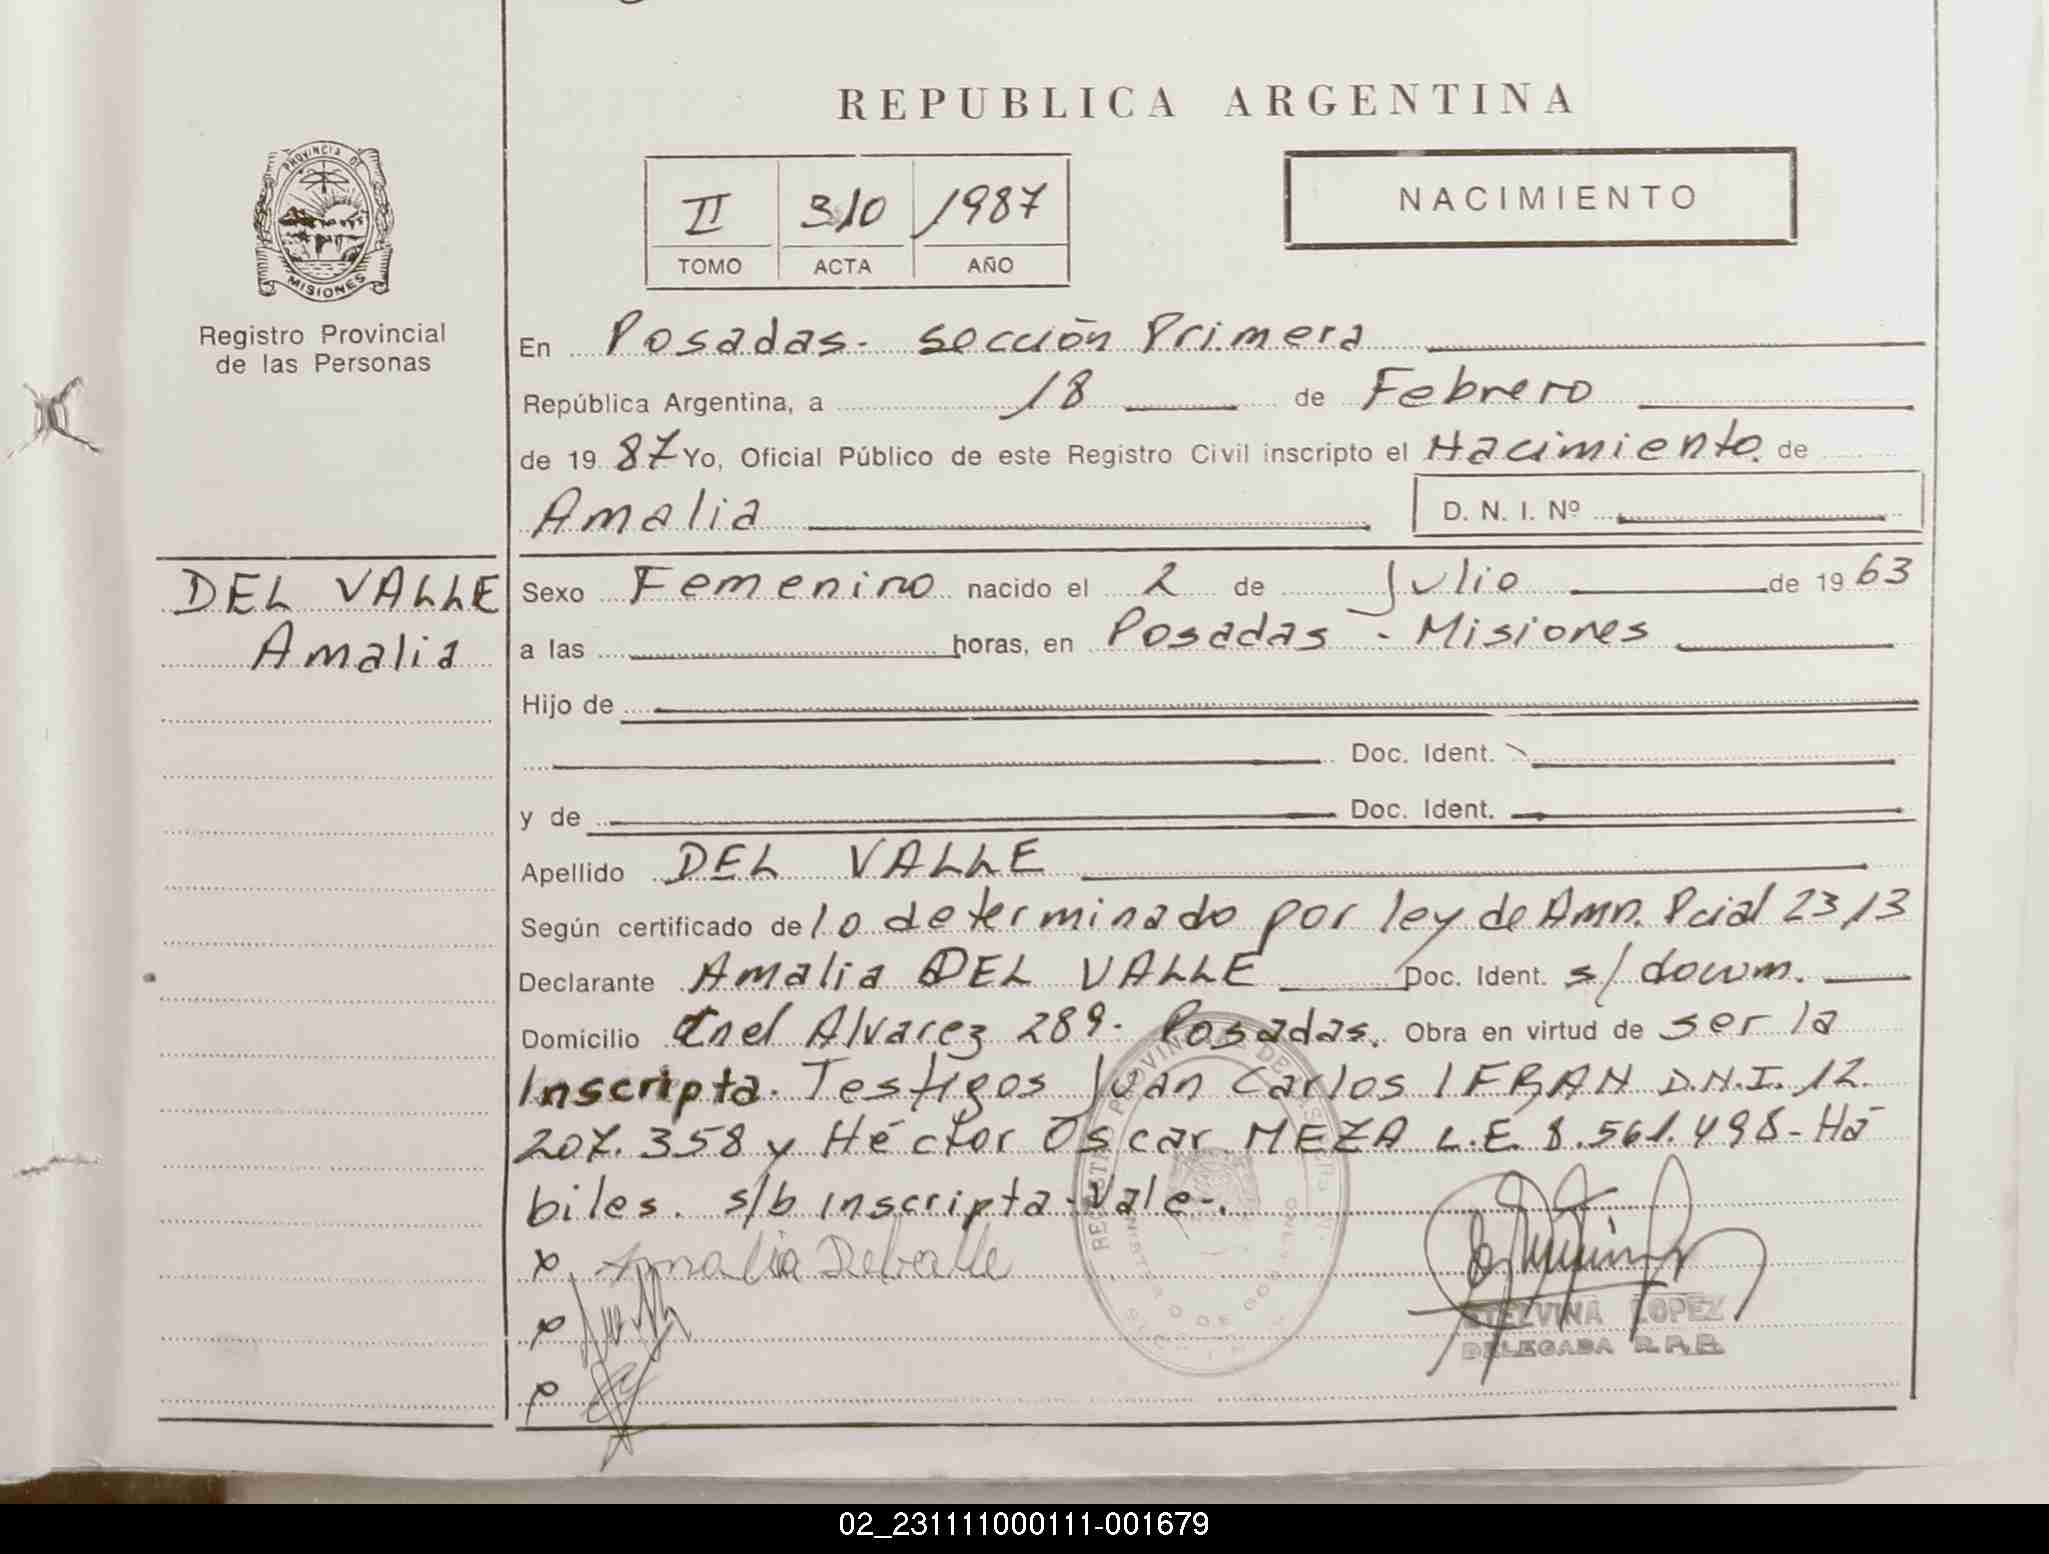 REPUBLICA ARGENTINA
PROVINCIA DE
MISIONES
Registro Provincial
de las Personas
II 310 1987
TOMO ACTA AÑO
NACIMIENTO
En Posadas- sección Primera
República Argentina, a 18 de Febrero
de 1987 Yo, Oficial Público de este Registro Civil inscripto el Nacimiento. de
Amalia D. N. I. Nº
DEL VALLE
Amalia
Sexo Femenino nacido el 2 de Julio de 1963
a las horas, en Posadas - Misiones
Hijo de
Doc. Ident.
y de Doc. Ident.
Apellido DEL VALLE
Según certificado de lo determinado por ley de Amn. Pcial 2313
Declarante Amalia DEL VALLE Doc. Ident. s/ docum.
Domicilio Cnel Alvarez 289- Posadas. Obra en virtud de ser la
Inscripta. Testigos Juan Carlos IFRAN D.N.I. 12.
207.358 y Héctor Oscar MEZA L.E. 8.561.498- Há
biles. s/b inscripta-Vale-.
x Amalia Delvalle
x
x
TELVINA LOPEZ
DELEGADA R.P.P.
02_231111000111-001679